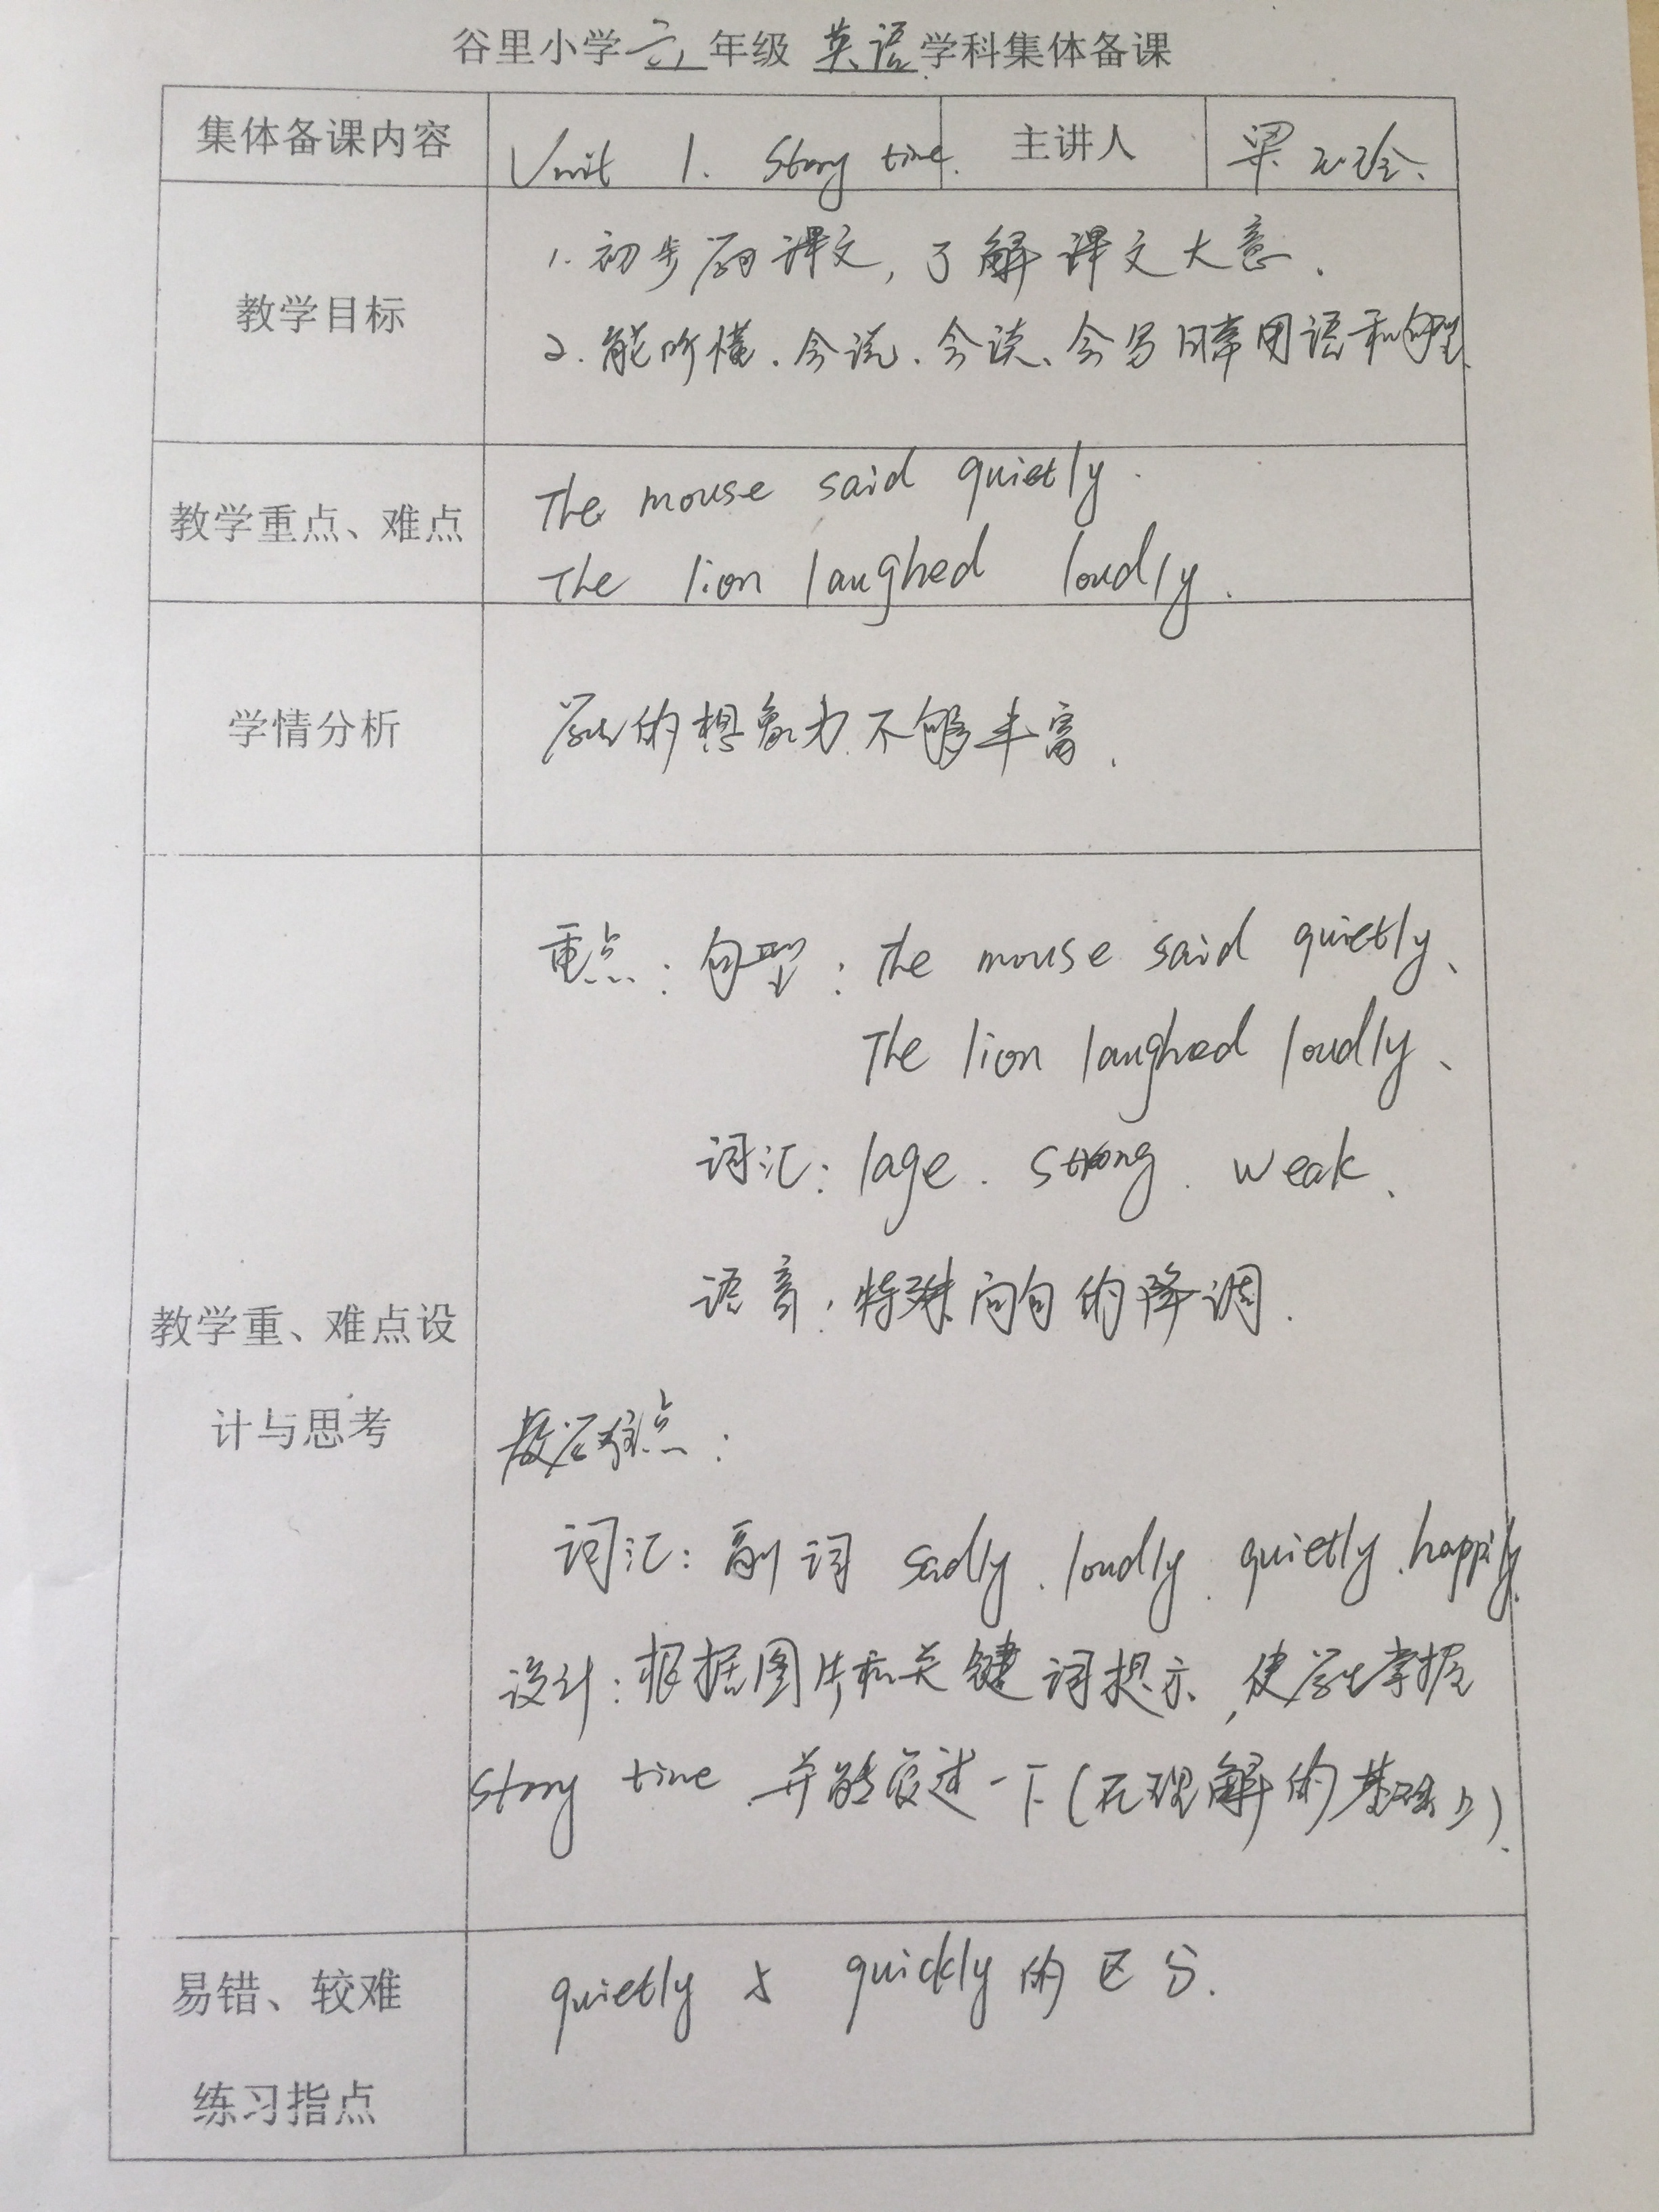 谷里小学 六 年级 英语 学科集体备课
集体备课内容 Unit 1. Story time. 主讲人 梁
教学目标
1. 初步学习课文, 了解课文大意.
2. 能听懂. 会说. 会读、会写日常用语和句型.
教学重点、难点
The mouse said quietly.
The lion laughed loudly.
学情分析
学生的想象力不够丰富.
教学重、难点设
计与思考
重点: 句型: The mouse said quietly、
The lion laughed loudly、
词汇: lage. strong. weak、
语音, 特殊问句的降调.
教学难点:
词汇: 副词 sadly. loudly. quietly. happily.
设计: 根据图片和关键词提示, 使学生掌握
story time 并能复述一下(在理解的基础上).
易错、较难
练习指点
quietly 与 quickly 的区分.